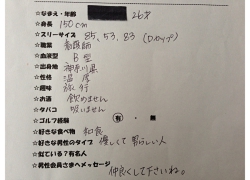 ☆なまえ・年齢 26才
☆身長 150cm
☆スリーサイズ 85, 53, 83 (Dカップ)
☆職業 看護師
☆血液型 B型
☆出身地 神奈川県
☆性格 温厚
☆趣味 旅行
☆お酒 飲めません
☆タバコ 吸いません
☆ゴルフ経験 有・無
☆好きな食べ物 和食
☆好きな男性のタイプ 優しくて男らしい人
☆似ている?有名人
☆男性会員さまへメッセージ
仲良くして下さいね。